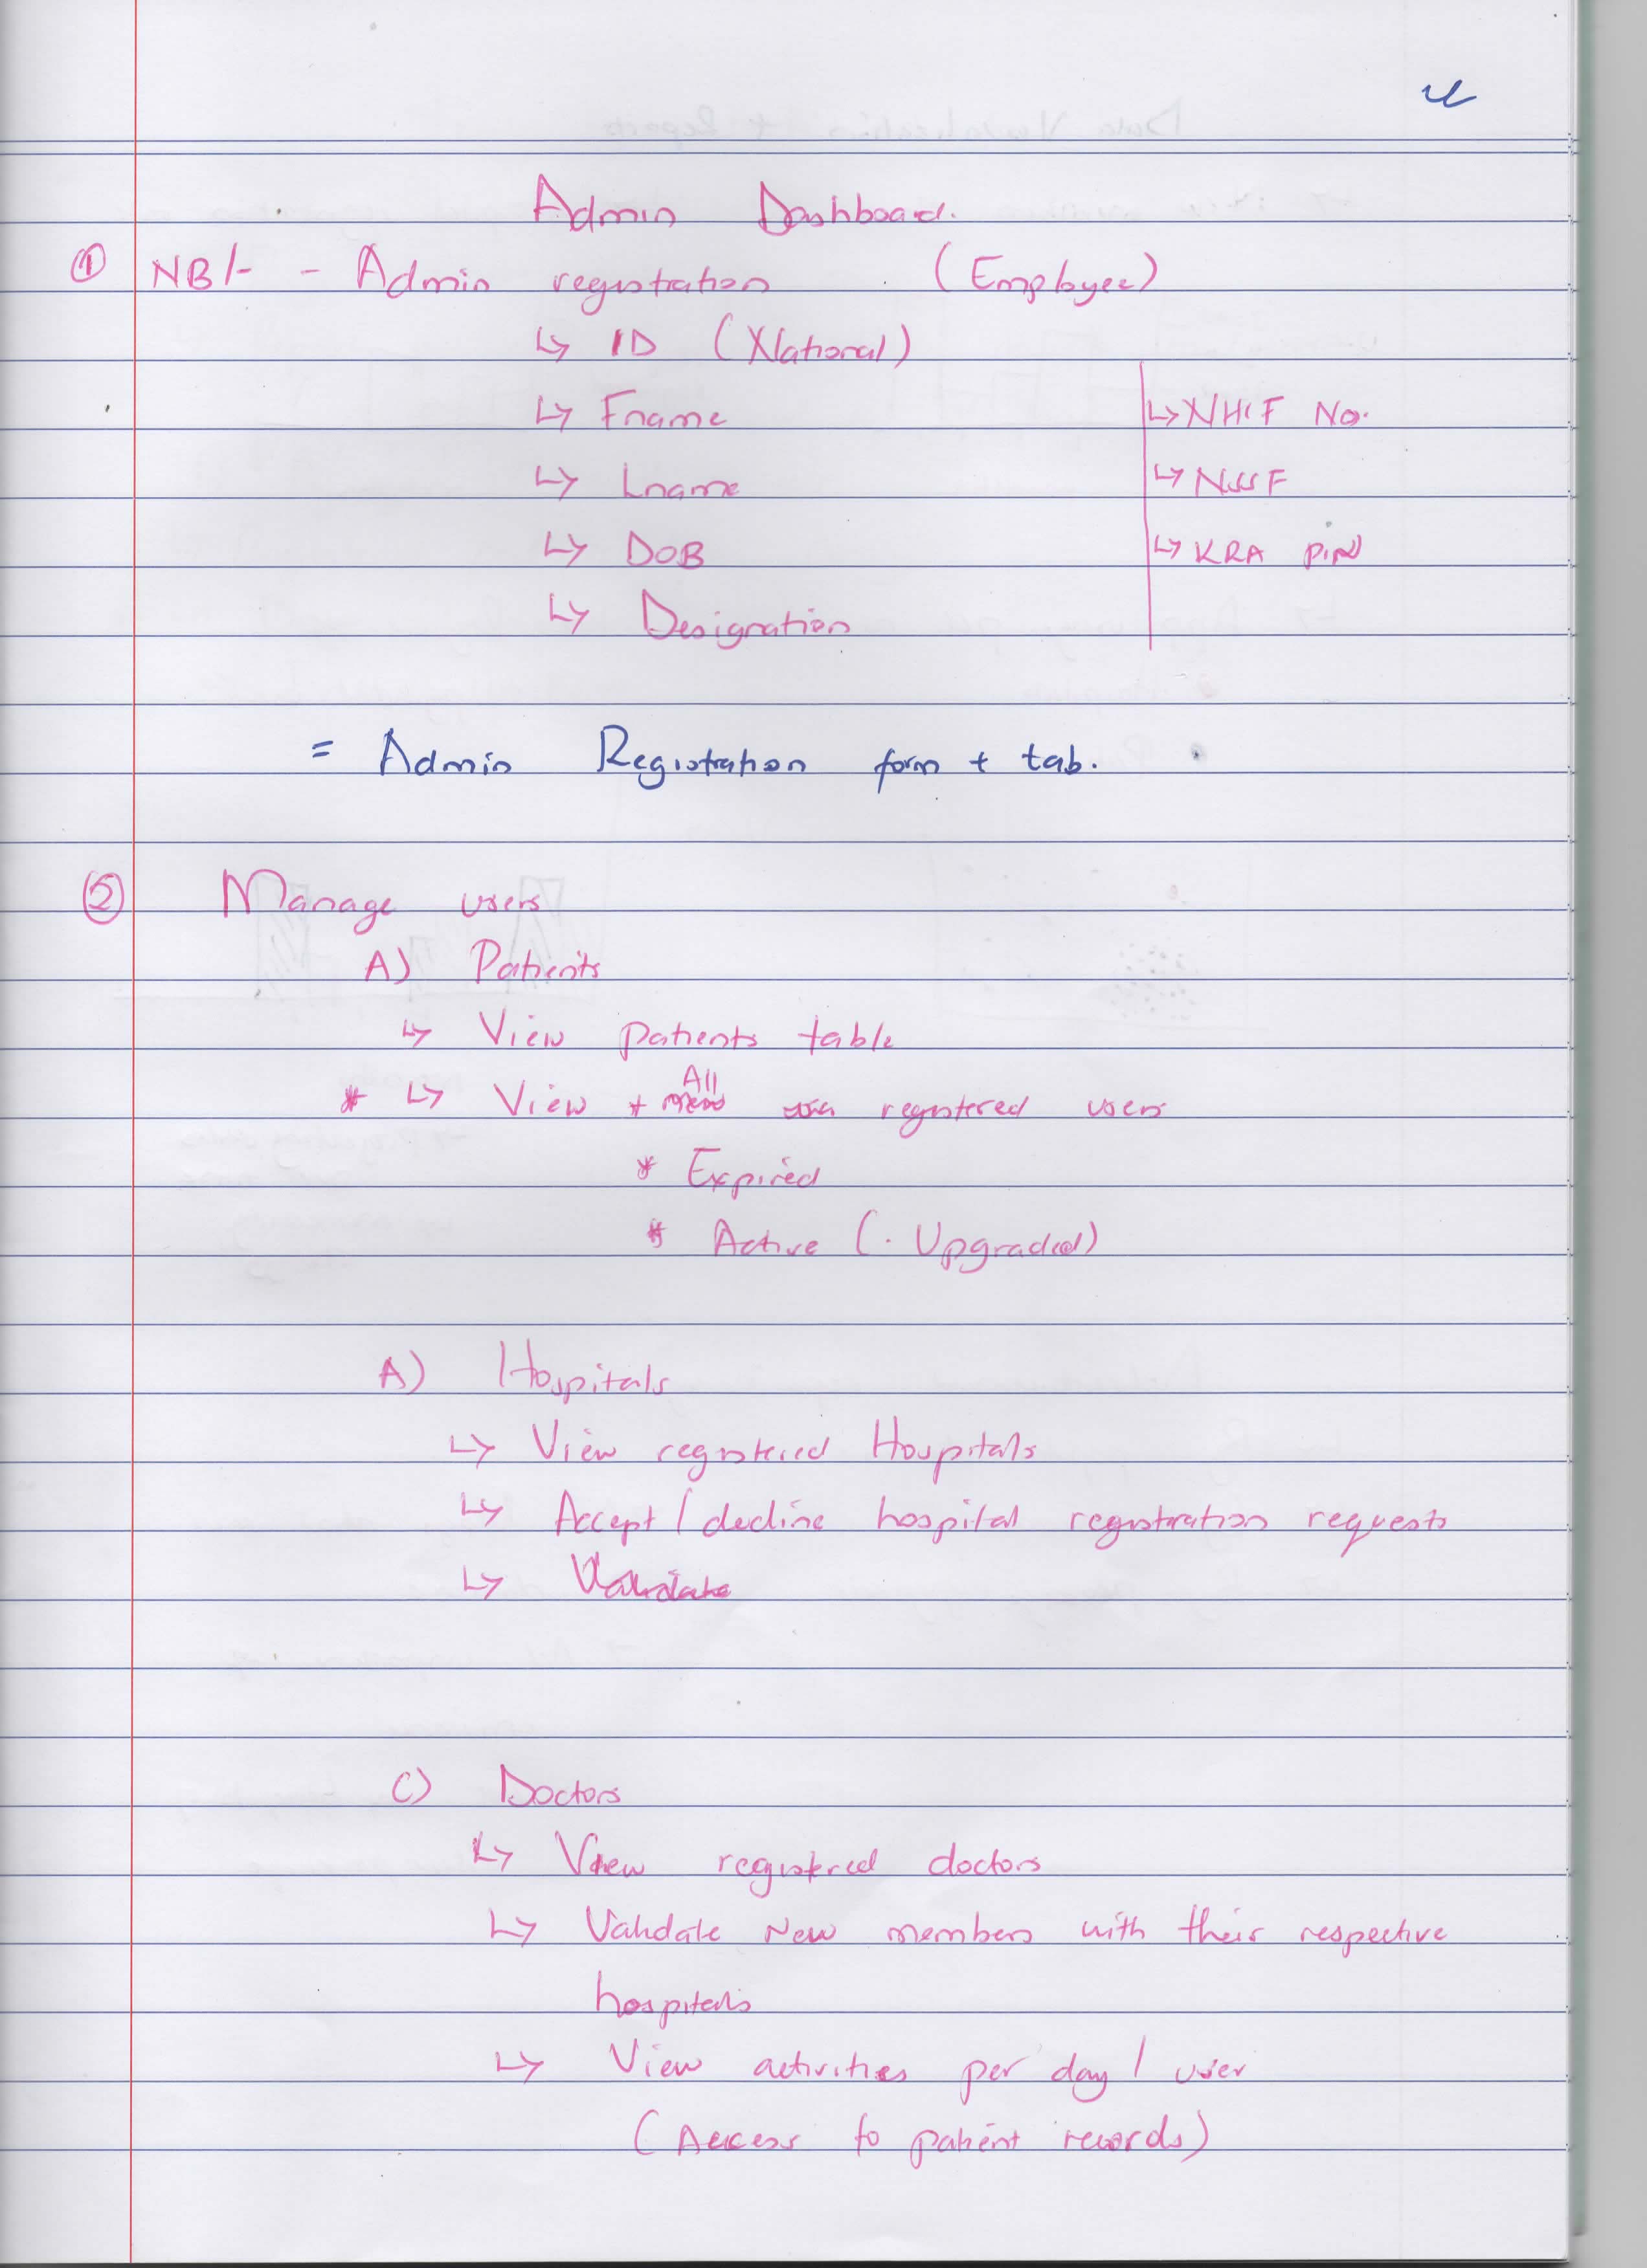 Admin Dashboard.
① NB/- - Admin registration (Employee)
↳ ID (National)
↳ Fname ↳ NHIF No.
↳ Lname ↳ NSSF
↳ DOB ↳ KRA PIN
↳ Designation
= Admin Registration form + tab.
② Manage users
A) Patients
↳ View patients table
All
* ↳ View + registered users
* Expired
* Active (. Upgraded)
A) Hospitals
↳ View registered Hospitals
↳ Accept / decline hospital registration requests
↳ Validate
C) Doctors
↳ View registered doctors
↳ Validate New members with their respective
hospitals
↳ View activities per day / user
(Access to patient records)